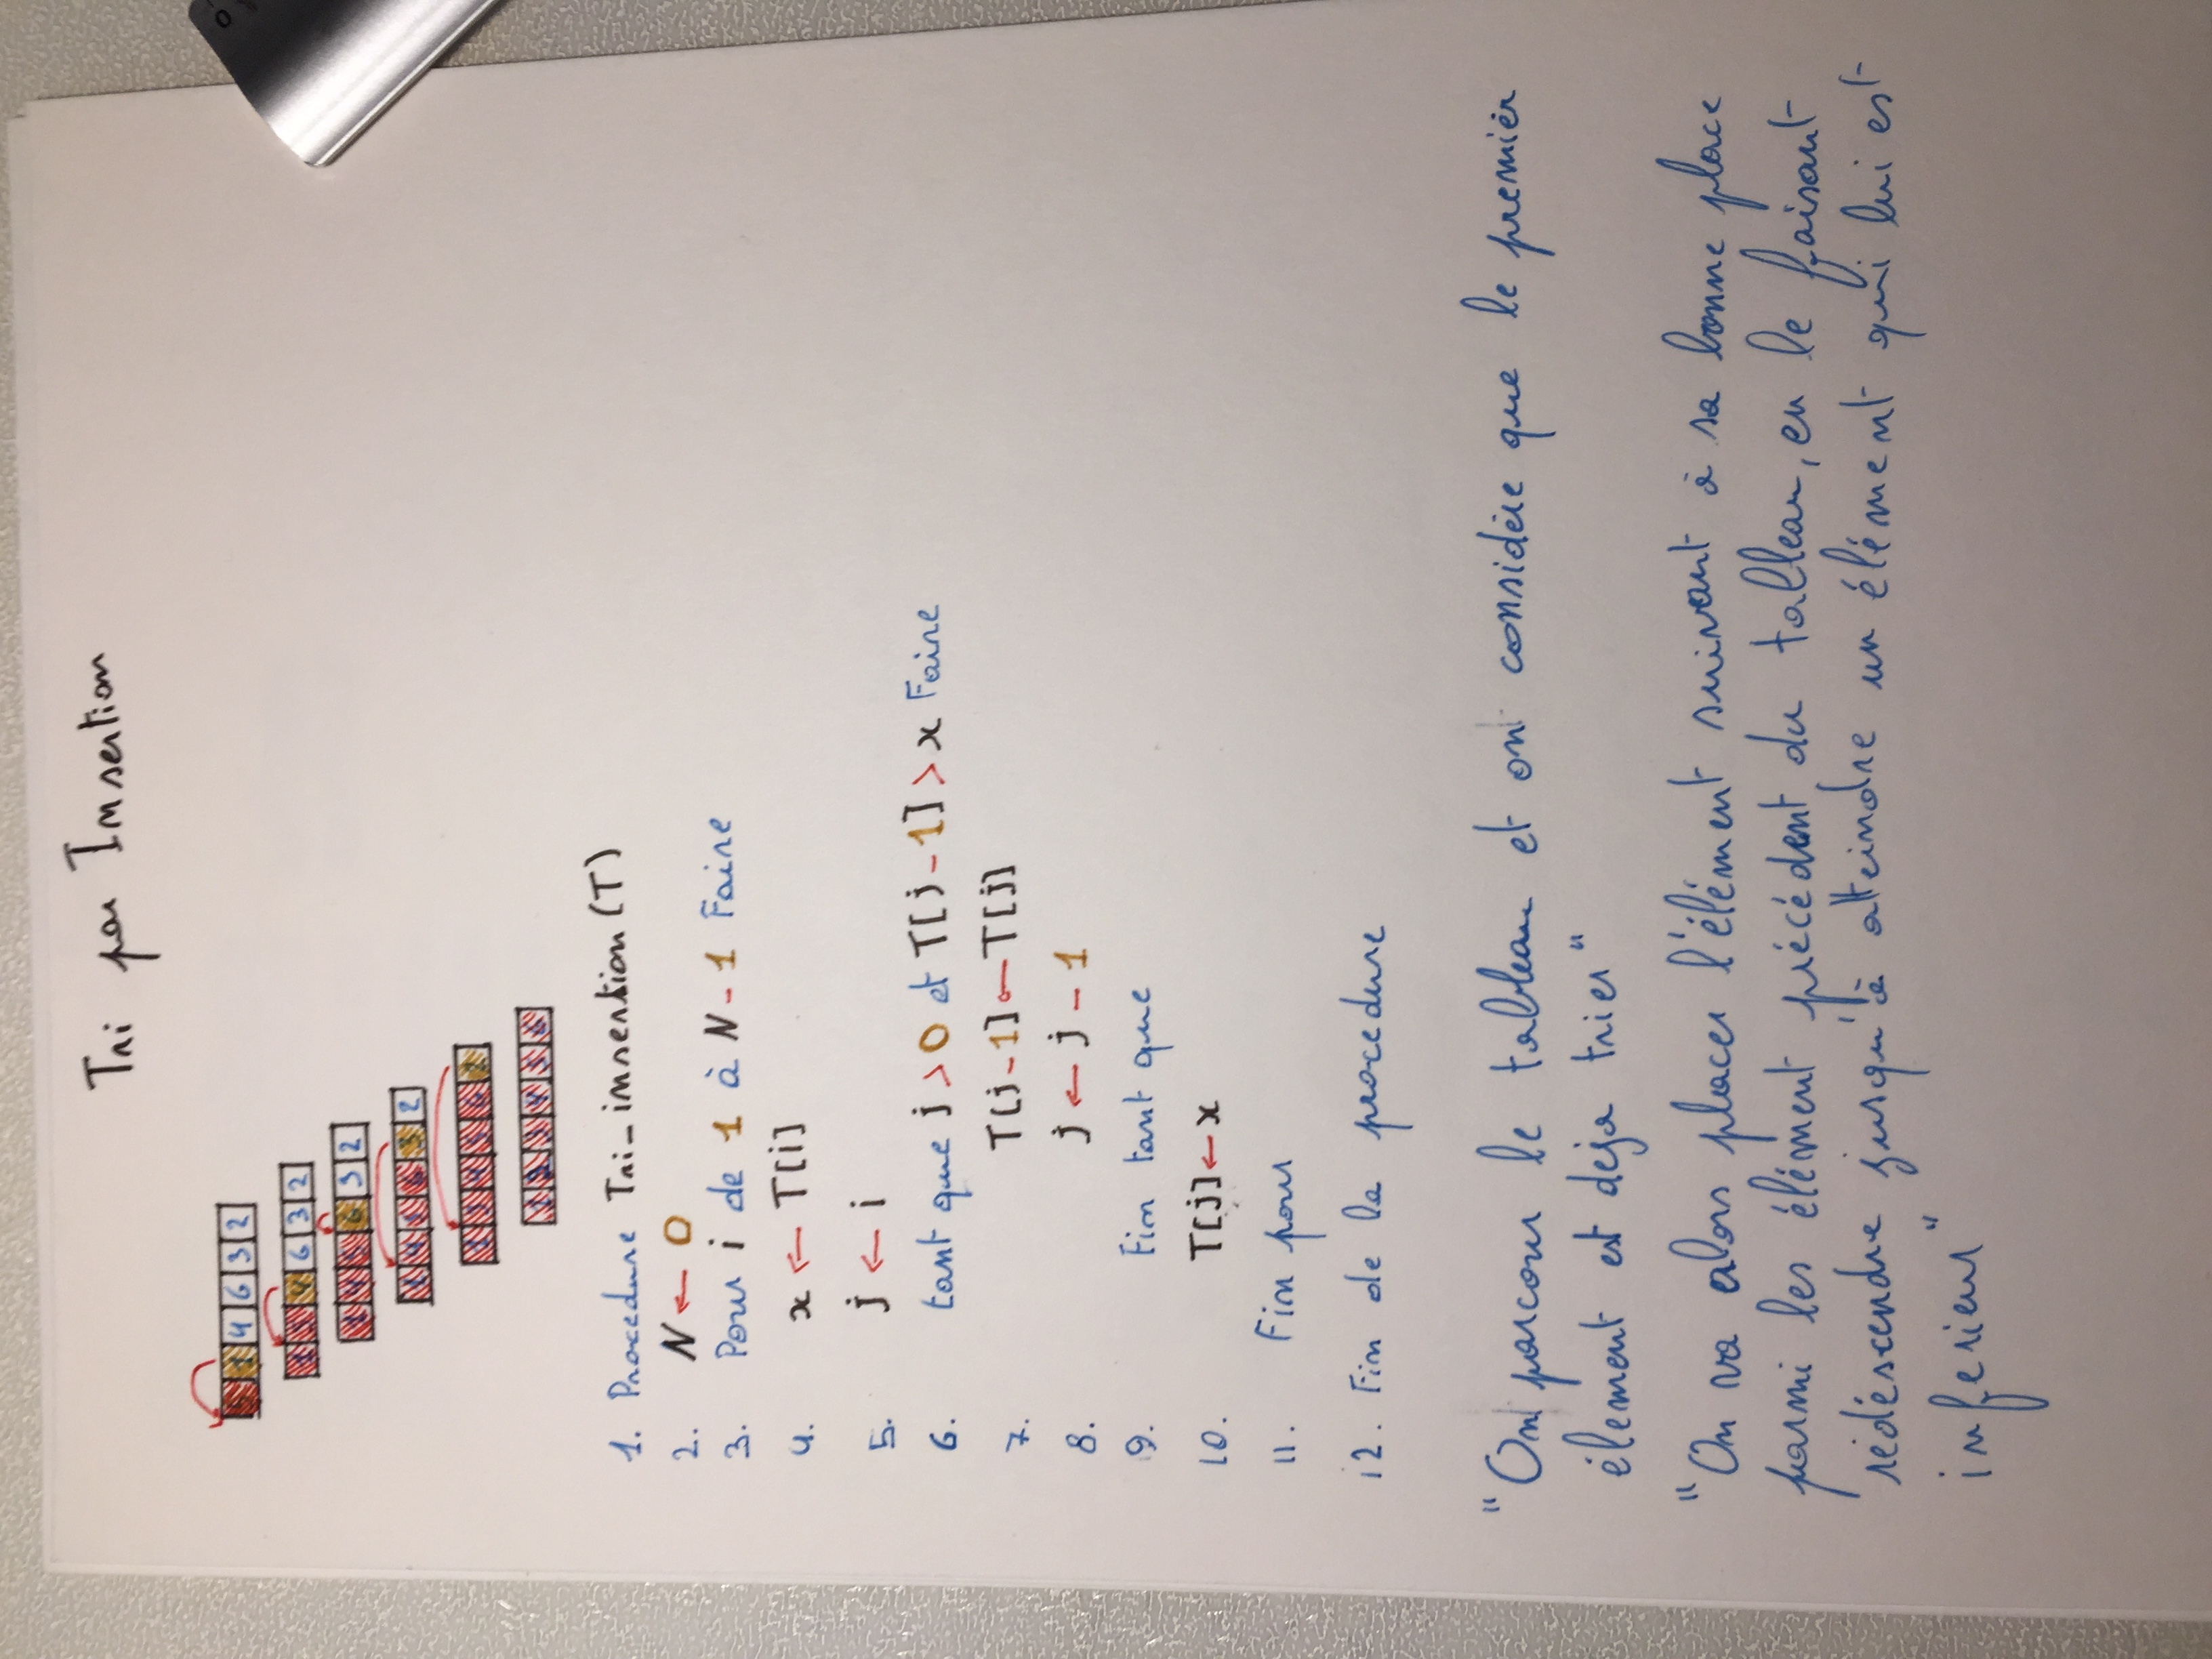 Tri par Insertion
5 1 4 6 3 2
1 5 4 6 3 2
1 4 5 6 3 2
1 4 5 6 3 2
1 3 4 5 6 2
1 2 3 4 5 6
1. Procedure Tri_insertion (T)
2. N ← 0
3. Pour i de 1 à N - 1 Faire
4. x ← T[i]
5. j ← i
6. tant que j > 0 et T[j-1] > x Faire
7. T[j-1] ← T[j]
8. j ← j - 1
9. Fin tant que
10. T[j] ← x
11. Fin pour
12. Fin de la procedure
"On parcour le tableau et ont considère que le premièr
élement est deja trier"
"On va alors placer l'élément suivant à sa bonne place
parmi les élément précédent du tableau, en le faisant
rédéscendre jusqu'à atteindre un élément qui lui est
inferieur"